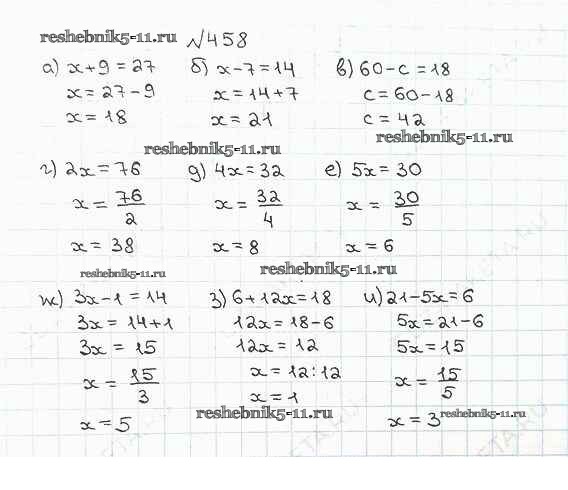 reshebnik5-11.ru №458
а) x+9=27 б) x-7=14 в) 60-c=18
x=27-9 x=14+7 c=60-18
x=18 x=21 c=42
reshebnik5-11.ru
reshebnik5-11.ru
г) 2x=76 д) 4x=32 е) 5x=30
x=76/2 x=32/4 x=30/5
x=38 x=8 x=6
reshebnik5-11.ru reshebnik5-11.ru
ж) 3x-1=14 з) 6+12x=18 и) 21-5x=6
3x=14+1 12x=18-6 5x=21-6
3x=15 12x=12 5x=15
x=15/3 x=12:12 x=15/5
x=5 x=1 x=3
reshebnik5-11.ru reshebnik5-11.ru